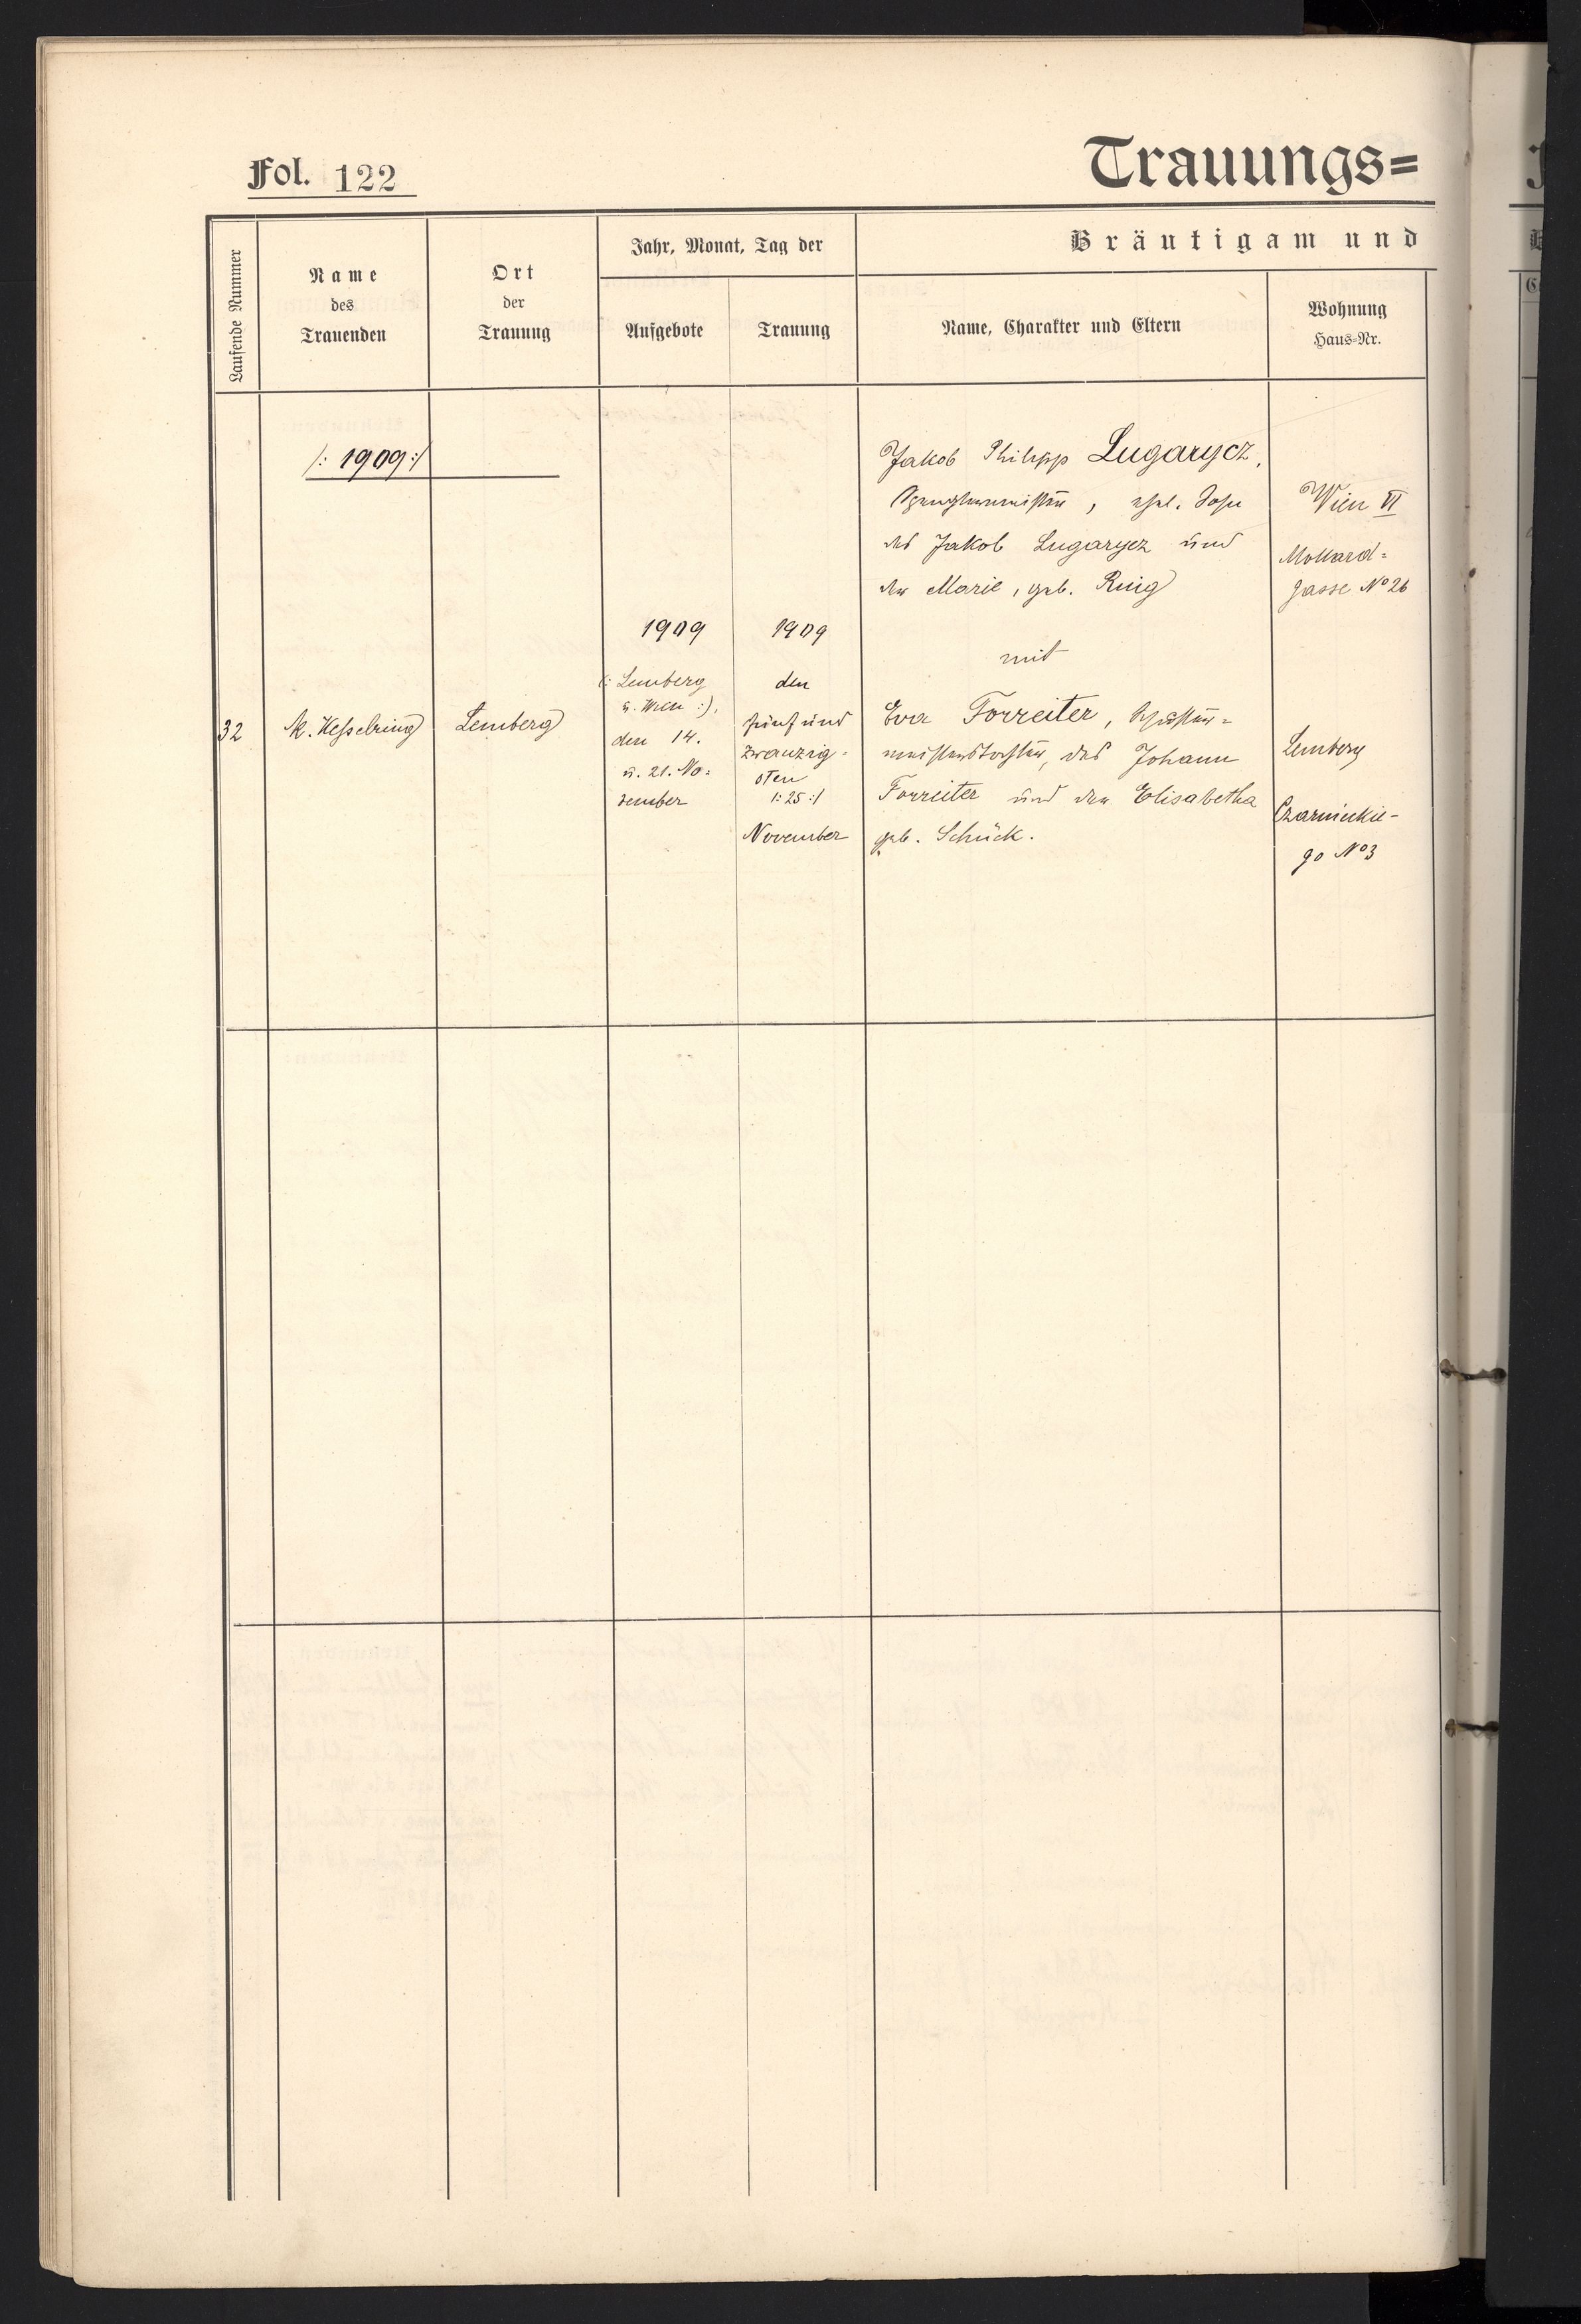 Fol. 122
Trauungs=
Laufende Nummer
Name
des
Trauenden
Ort
der
Trauung
Jahr, Monat, Tag der
Aufgebote
Trauung
Bräutigam und
Name, Charakter und Eltern
Wohnung
Haus-Nr.
/: 1909 :/
32
K. Kesselring
Lemberg
1909
(: Lemberg
u. Wien :),
den 14.
u. 21. No=
vember
1909
den
fünfund
zwanzig-
sten
/: 25 :/
November
Jakob Philipp Lugarycz,
Spenglermeister, ehel. Sohn
des Jakob Lugarycz und
der Marie, geb.
mit
Eva Forreiter, Schuster=
meisterstochter, des Johann
Forreiter und der Elisabetha
geb. Schück.
Wien VI
Mollard=
gasse No 26
Lemberg
Czarnieckie-
go No 3